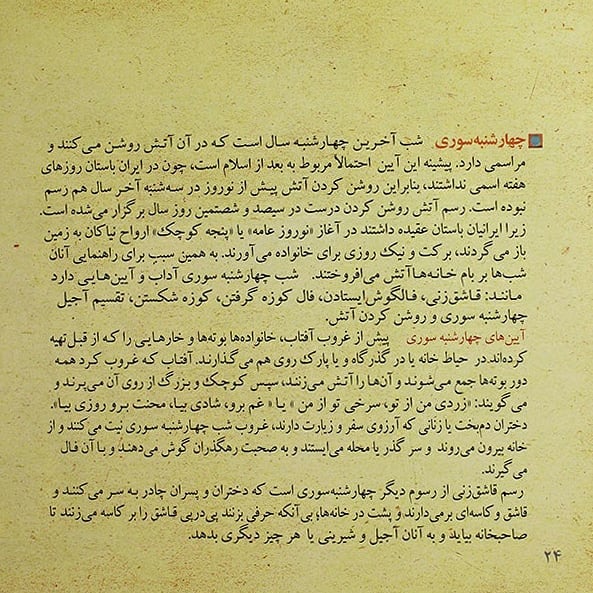 چهارشنبه‌سوری شب آخرین چهارشنبه سال است که در آن آتش روشن می‌کنند و
مراسمی دارد. پیشینه این آیین احتمالاً مربوط به بعد از اسلام است، چون در ایران باستان روزهای
هفته اسمی نداشتند، بنابراین روشن کردن آتش پیش از نوروز در سه‌شنبه آخر سال هم رسم
نبوده است. رسم آتش روشن کردن درست در سیصد و شصتمین روز سال برگزار می‌شده است.
زیرا ایرانیان باستان عقیده داشتند در آغاز «نوروز عامه» یا «پنجه کوچک» ارواح نیاکان به زمین
باز می‌گردند، برکت و نیک روزی برای خانواده می‌آورند. به همین سبب برای راهنمایی آنان
شب‌ها بر بام خانه‌ها آتش می‌افروختند. شب چهارشنبه سوری آداب و آیین‌هایی دارد
مانند: قاشق‌زنی، فالگوش‌ایستادن، فال کوزه گرفتن، کوزه شکستن، تقسیم آجیل
چهارشنبه سوری و روشن کردن آتش.
آیین‌های چهارشنبه سوری پیش از غروب آفتاب، خانواده‌ها بوته‌ها و خارهایی را که از قبل تهیه
کرده‌اند در حیاط خانه یا در گذرگاه و یا پارک روی هم می‌گذارند. آفتاب که غروب کرد همه
دور بوته‌ها جمع می‌شوند و آن‌ها را آتش می‌زنند، سپس کوچک و بزرگ از روی آن می‌پرند و
می‌گویند: «زردی من از تو، سرخی تو از من » یا « غم برو، شادی بیا، محنت برو روزی بیا».
دختران دم‌بخت یا زنانی که آرزوی سفر و زیارت دارند، غروب شب چهارشنبه سوری نیت می‌کنند و از
خانه بیرون می‌روند و سر گذر یا محله می‌ایستند و به صحبت رهگذران گوش می‌دهند و با آن فال
می‌گیرند.
رسم قاشق‌زنی از رسوم دیگر چهارشنبه‌سوری است که دختران و پسران چادر به سر می‌کنند و
قاشق و کاسه‌ای برمی‌دارند و پشت در خانه‌ها؛ بی‌آنکه حرفی بزنند پی‌درپی قاشق را بر کاسه می‌زنند تا
صاحبخانه بیاید و به آنان آجیل و شیرینی یا هر چیز دیگری بدهد.
۲۴